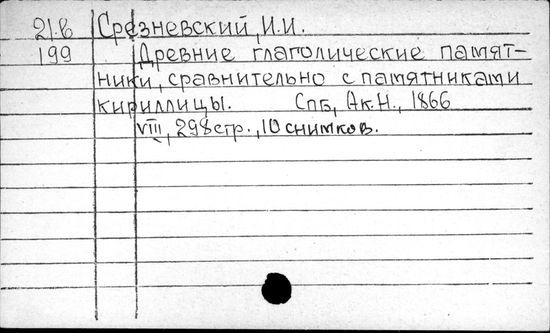 21.в Срезневский, И.И.
199 Древние глаголические памят-
ники, сравнительно с памятниками
кириллицы. Спб, Ак.Н., 1866
VIII, 298 стр., 10 снимков.